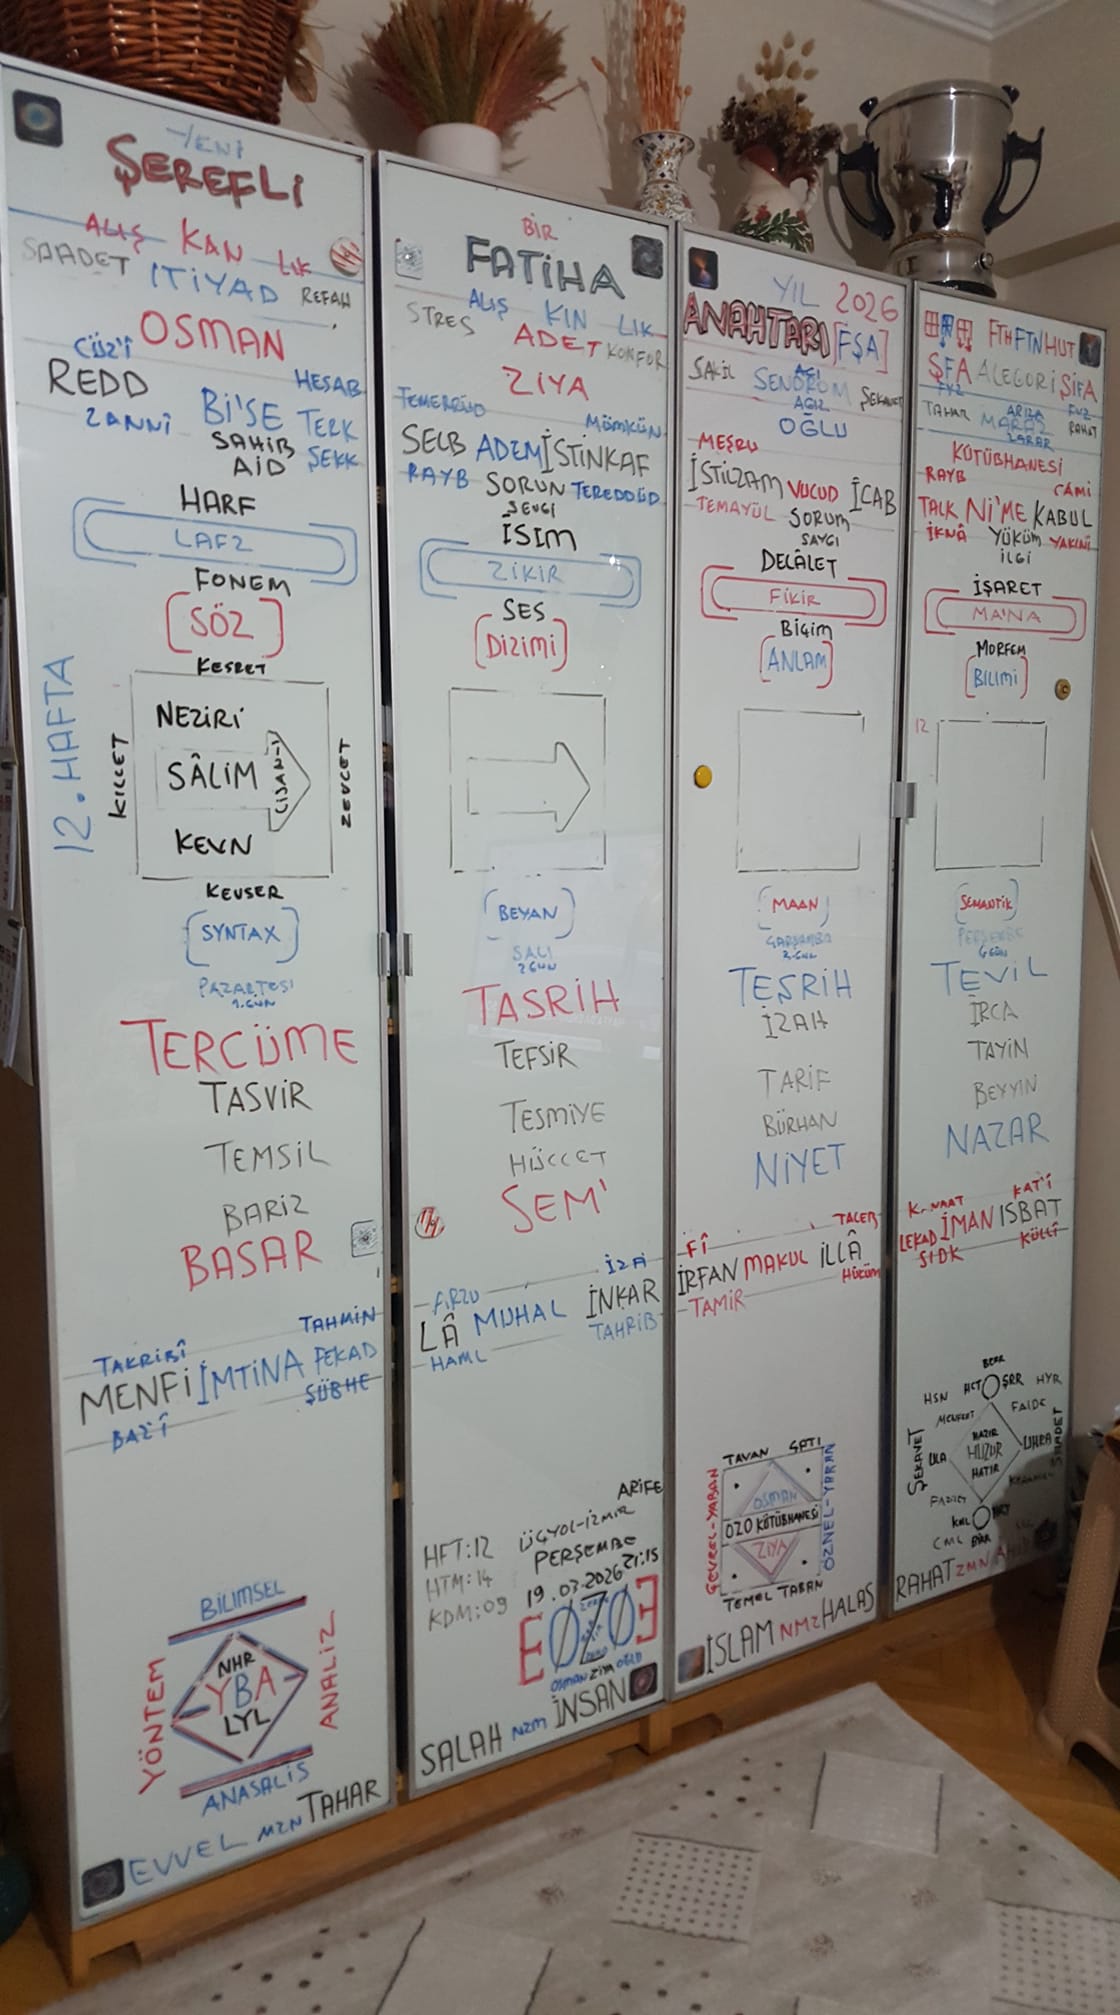 YENİ
ŞEREFLİ
ALIŞ KAN LIK
SAADET ITİYAD REFAH
OSMAN
CÜZ'İ
REDD HESAB
ZANNİ Bİ'SE TERK
SAHİB ŞEKK
AİD
HARF
LAFZ
FONEM
[SÖZ]
KESRET
12.HAFTA
KILLET
NEZİRİ
SÂLİM
(İSAN-I)
KEVN
ZEVCET
KEVSER
[SYNTAX]
PAZARTESİ
1.GÜN
TERCÜME
TASVİR
TEMSİL
BARİZ
BASAR
TAHMİN
TAKRİBÎ
MENFİ İMTİNA FEKAD
BAZ'Î ŞÜBHE
BİLİMSEL
YÖNTEM
NHR
YBA
LYL
ANALİZ
ANASALIS
EVVEL MZN TAHAR
BİR
FATİHA
ALIŞ KIN LIK
STRES ADET KONFOR
ZİYA
TEMERRÜD MÜMKÜN
SELB ADEM İSTİNKAF
RAYB SORUN TEREDDÜD
SEVGİ
İSİM
ZİKİR
SES
[DİZİMİ]
[BEYAN]
SALI
2.GÜN
TASRİH
TEFSİR
TESMİYE
HÜCCET
SEM'
ARZU İZAİ
LÂ MUHAL İNKAR
HAML TAHRİB
ARİFE
HFT:12 ÜÇYOL-İZMİR
HTM:14 PERŞEMBE
KDM:09 19.03.2026 21:15
E0Z03
OSMAN ZİYA OĞLU
SALAH NZM İNSAN
YIL 2026
ANAHTARI [FŞA]
AĞI
SAKİL SENDROM ŞEKAVET
AĞIZ
OĞLU
MEŞRU
İSTİLZAM VUCUD İCAB
TEMAYÜL SORUM
SAYGI
DELÂLET
FİKİR
BİÇİM
[ANLAM]
[MAAN]
ÇARŞAMBA
3.GÜN
TEŞRİH
İZAH
TARİF
BÜRHAN
NİYET
Fİ TALEB
İRFAN MAKUL İLLÂ
TAMİR HÜKÜM
TAVAN ÇATI
ÇEVREL-YABAN
OSMAN
OZO KÜTÜBHANESİ
ZİYA
ÖZNEL-YARAN
TEMEL TABAN
İSLAM NMZ HALAS
FTH FTN HUT
ŞFA ALEGORİ ŞİFA
TAHAR ARIZA RAHAT
MARAZ
ZARAR
KÜTÜBHANESİ
RAYB CAMİ
TALK Nİ'ME KABUL
İKNÂ YÜKÜM YAKINİ
İLGİ
İŞARET
MA'NA
MORFEM
[BİLİMİ]
12
[SEMANTİK]
PERŞEMBE
4.GÜN
TEVİL
İRCA
TAYİN
BEYYİN
NAZAR
KANAAT KAT'İ
LEKAD İMAN İSBAT
SIDK KÜLLÎ
BERR
HCT ŞRR
HSN HYR
MENFEET FAİDE
ŞEKAVET
HAZIR
ULA HUZUR UHRA
HATIR
SAADET
CML
RAHAT ZMN AHİR